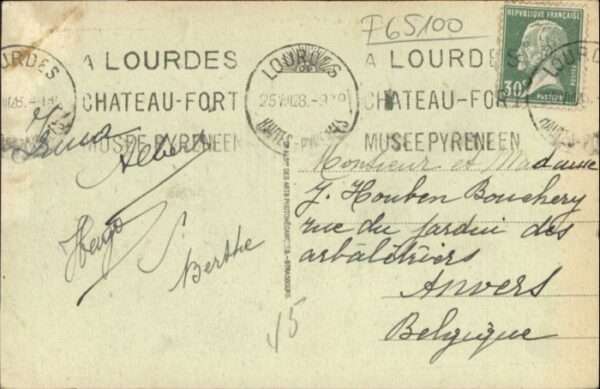 F65100
RÉPUBLIQUE FRANÇAISE
30
POSTES
LOURDES
A LOURDES
CHATEAU-FORT
MUSEE PYRENEEN
LOURDES
HAUTES-PYRENEES
A LOURDES
CHATEAU-FORT
MUSEE PYRENEEN
LOURDES
Irma
Albert
Hugo
Berthe
Monsieur et Madame
J. Houben Bouchery
rue du jardin des
arbalétriers
Anvers
Belgique
15